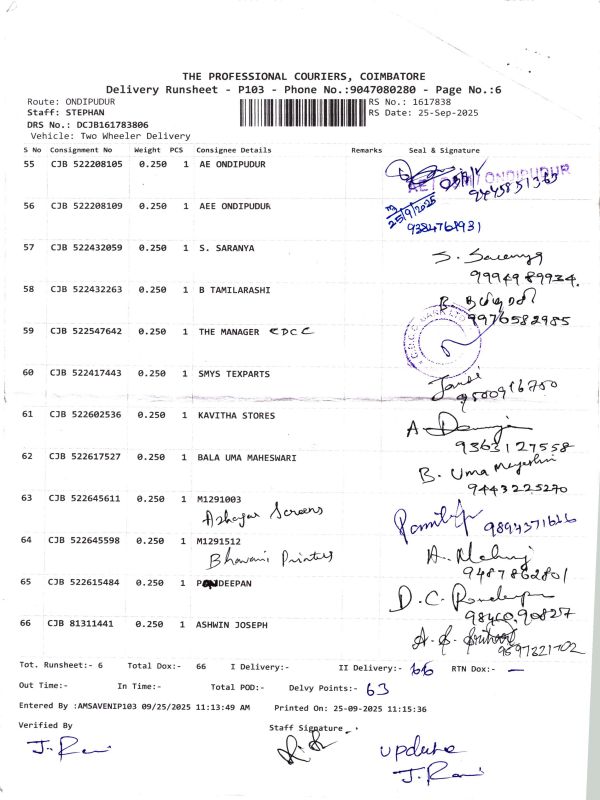 THE PROFESSIONAL COURIERS, COIMBATORE
Delivery Runsheet - P103 - Phone No.:9047080280 - Page No.:6
Route: ONDIPUDUR RS No.: 1617838
Staff: STEPHAN RS Date: 25-Sep-2025
DRS No.: DCJB161783806
Vehicle: Two Wheeler Delivery
S No Consignment No Weight PCS Consignee Details Remarks Seal & Signature
55 CJB 522208105 0.250 1 AE ONDIPUDUR ONDIPUDUR
56 CJB 522208109 0.250 1 AEE ONDIPUDUR 25/9/2025
9384768931
57 CJB 522432059 0.250 1 S. SARANYA S. Saranya
9994989934.
58 CJB 522432263 0.250 1 B TAMILARASHI B.
9976582985
59 CJB 522547642 0.250 1 THE MANAGER CDCC
60 CJB 522417443 0.250 1 SMYS TEXPARTS
9500916750
61 CJB 522602536 0.250 1 KAVITHA STORES A.
9363127558
62 CJB 522617527 0.250 1 BALA UMA MAHESWARI B. Uma
9443225270
63 CJB 522645611 0.250 1 M1291003
Azhagar Screens 9894371666
64 CJB 522645598 0.250 1 M1291512
Bhavani Printers 9487862801
65 CJB 522615484 0.250 1 PONDEEPAN D.C.
98460.90827
66 CJB 81311441 0.250 1 ASHWIN JOSEPH
9597321702
Tot. Runsheet:- 6 Total Dox:- 66 I Delivery:- II Delivery:- 66 RTN Dox:- —
Out Time:- In Time:- Total POD:- Delvy Points:- 63
Entered By :AMSAVENIP103 09/25/2025 11:13:49 AM Printed On: 25-09-2025 11:15:36
Verified By Staff Signature
J. Rani update
J. Rani